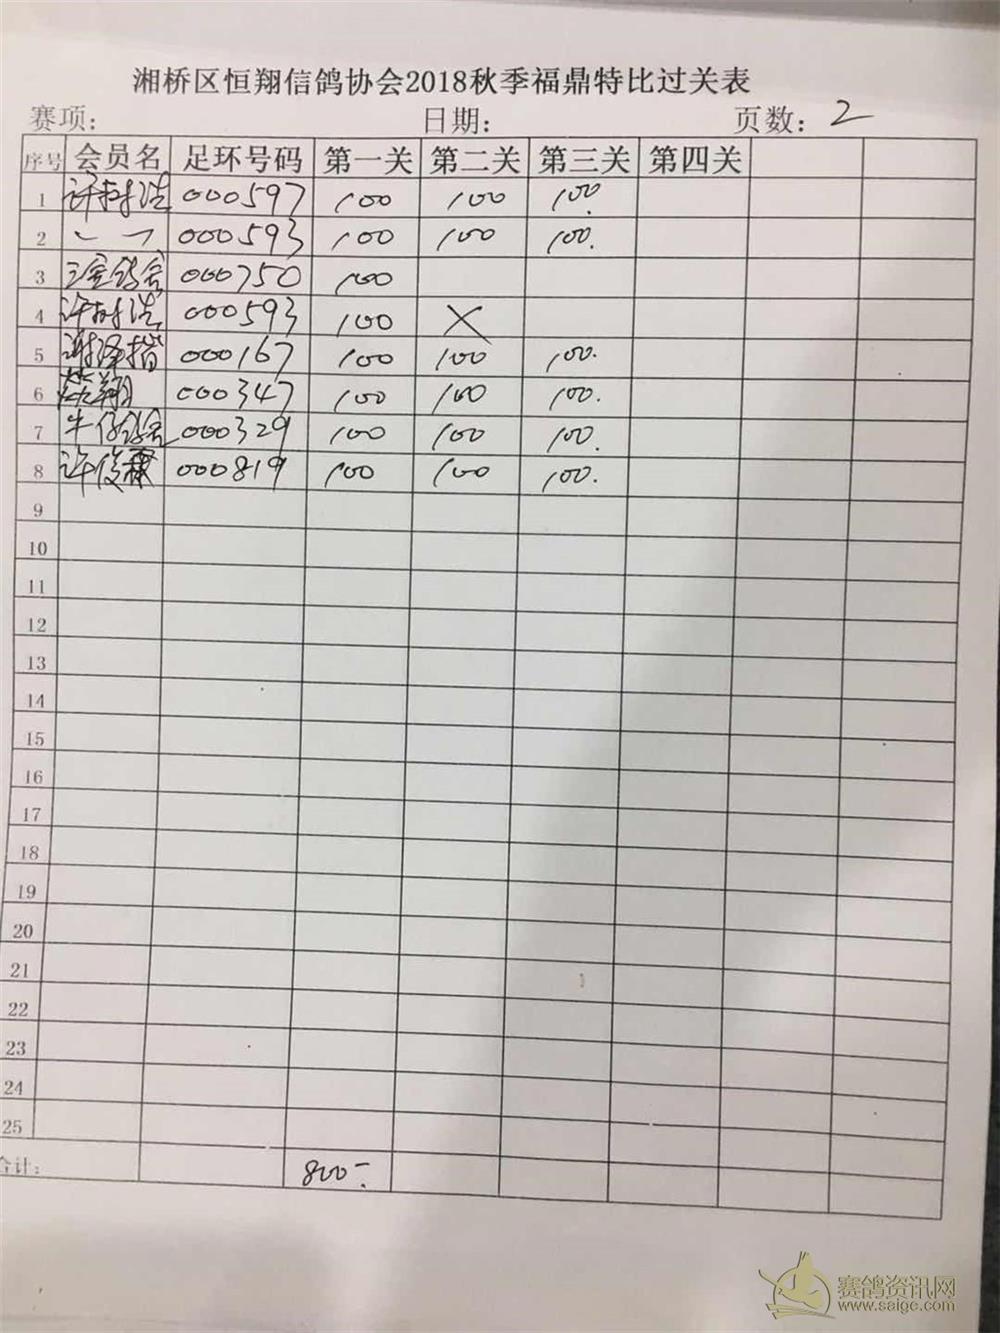 湘桥区恒翔信鸽协会2018秋季福鼎特比过关表
赛项: 日期: 页数: 2
序号 会员名 足环号码 第一关 第二关 第三关 第四关
1 许树浩 000597 100 100 100.
2 000593 100 100 100.
3 000750 100
4 许树浩 000593 100 ×
5 000167 100 100 100.
6 000347 100 100 100.
7 牛仔鸽舍 000329 100 100 100.
8 许俊 000819 100 100 100.
9
10
11
12
13
14
15
16
17
18
19
20
21
22
23
24
25
合计: 800-
赛鸽资讯网
www.saige.com